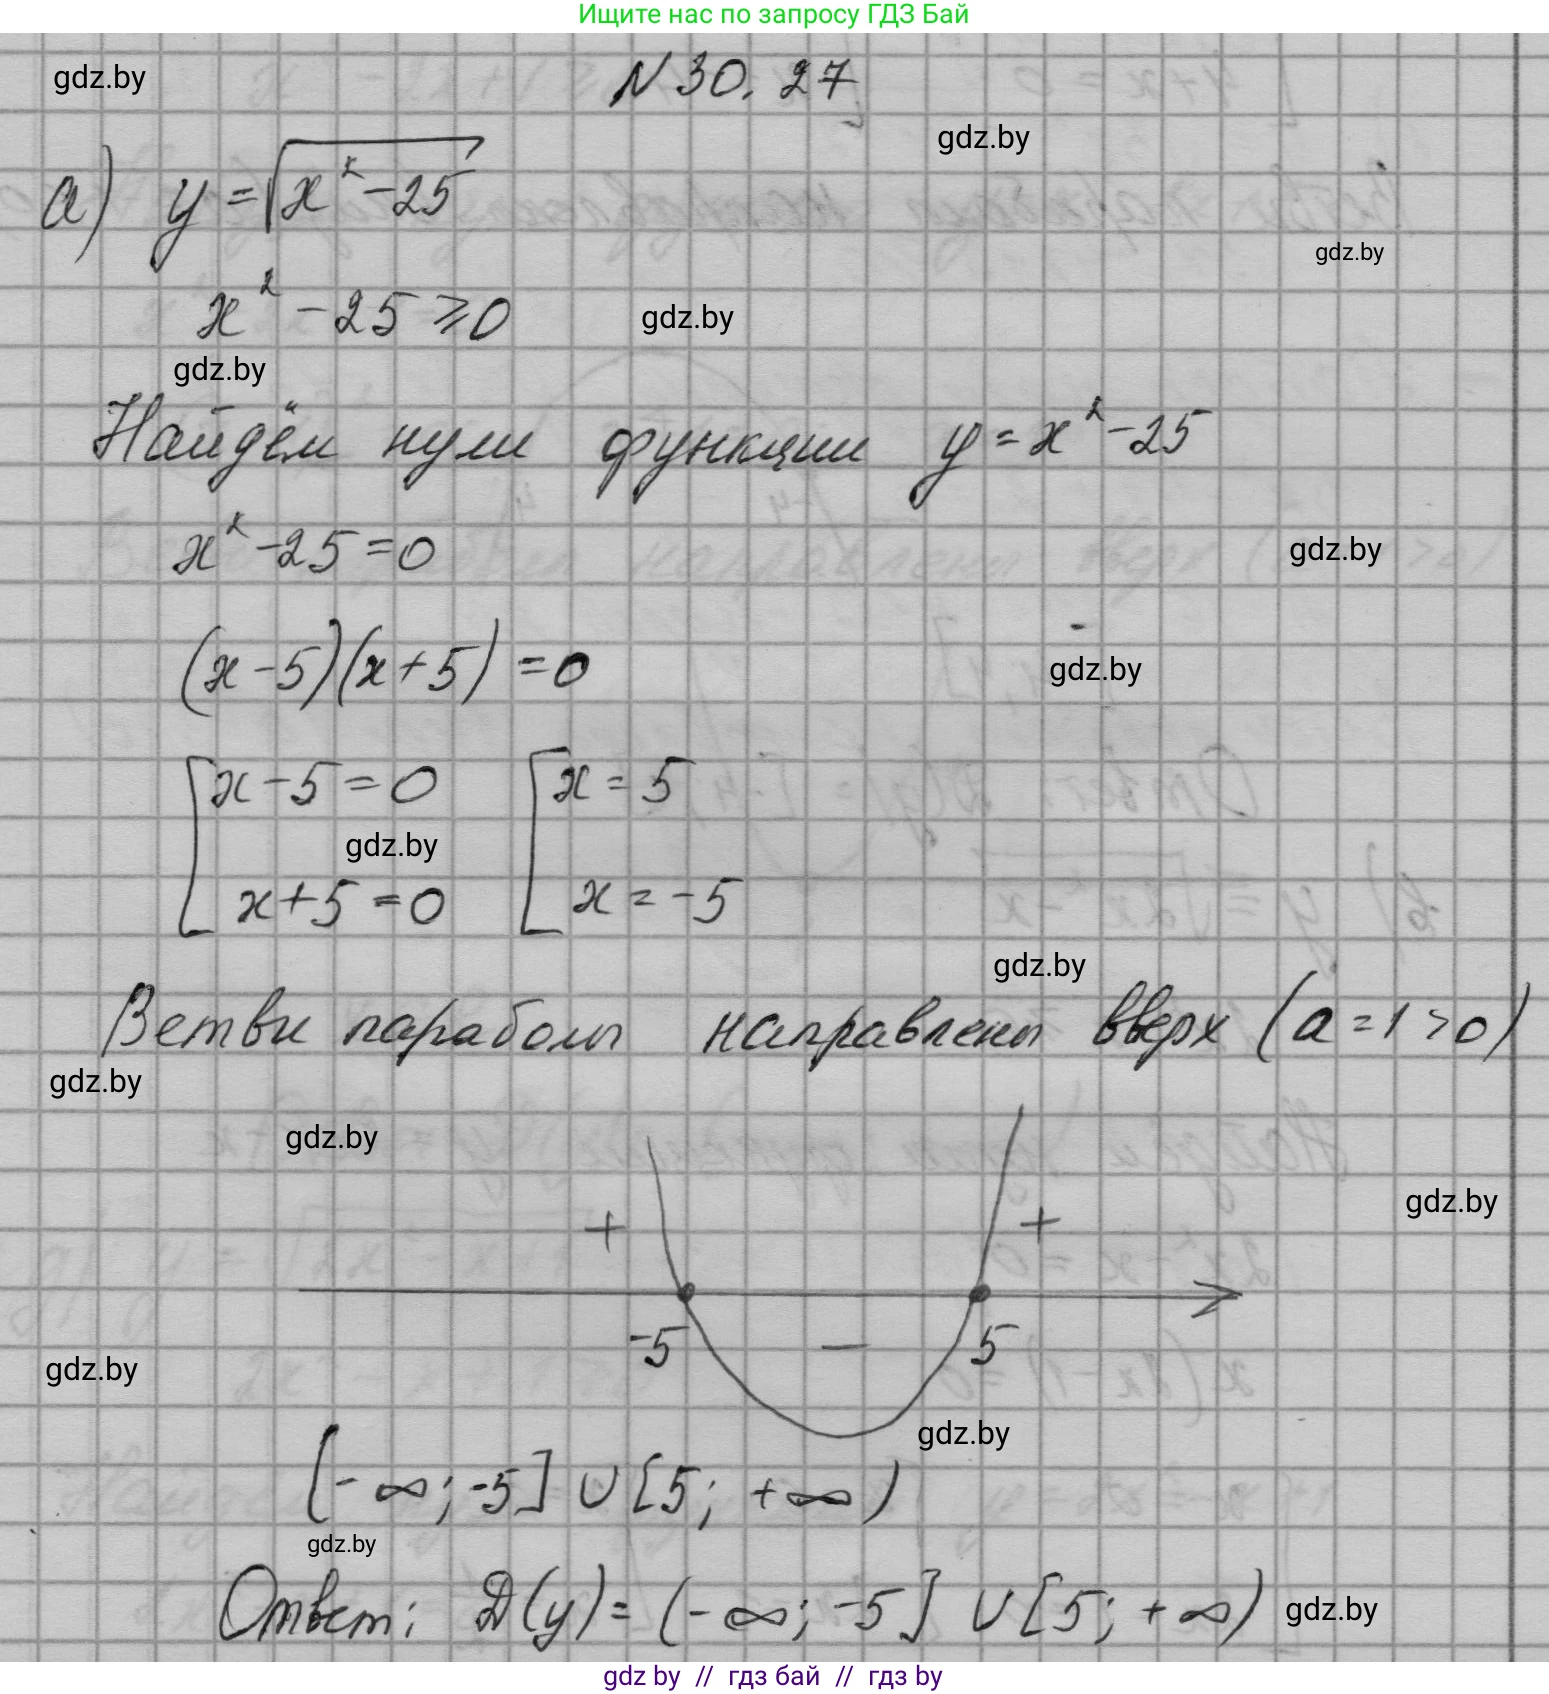 Ищите нас по запросу ГДЗ Бай
gdz.by
N 30. 27
gdz.by
а) y = √x² - 25
gdz.by
x² - 25 ⩾ 0
gdz.by
gdz.by
Найдём нули функции y = x² - 25
x² - 25 = 0
gdz.by
(x - 5)(x + 5) = 0
gdz.by
[ x - 5 = 0 [ x = 5
gdz.by
x + 5 = 0 x = -5
gdz.by
Ветви параболы направлены вверх (a = 1 > 0)
gdz.by
gdz.by
gdz.by
+ +
-5 – 5
gdz.by
gdz.by
(-∞; -5] ∪ [5; +∞)
gdz.by
Ответ: D(y) = (-∞; -5] ∪ [5; +∞)
gdz.by
gdz by // гдз бай // гдз by